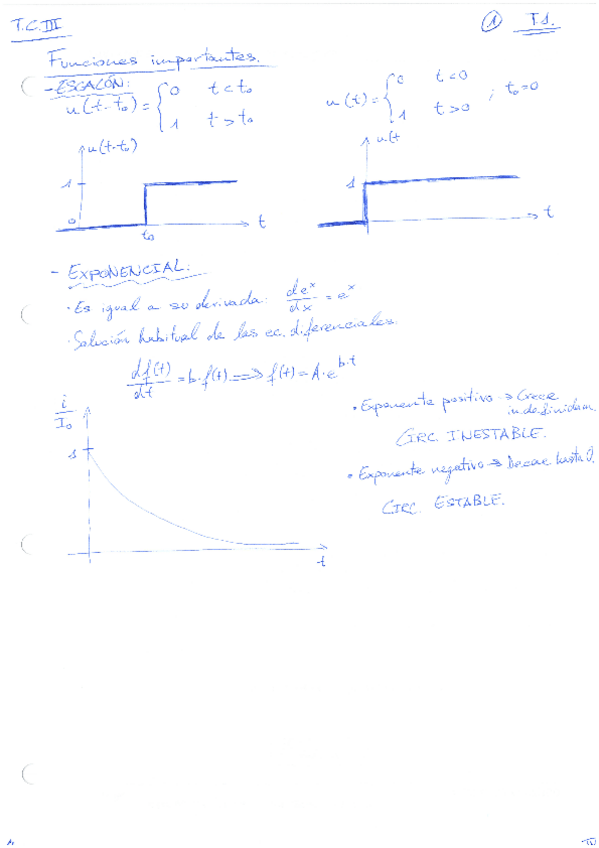 T.C.III
① T.1.
Funciones importantes.
- ESCALÓN:
u(t-t₀) = { 0 t < t₀
1 t > t₀
u(t) = { 0 t < 0 ; t₀=0
1 t > 0
u(t-t₀)
1
0
t₀
t
u(t
1
t
- EXPONENCIAL:
· Es igual a su derivada: de^x/dx = e^x
· Solución habitual de las ec. diferenciales.
df(t)/dt = b·f(t) ⟹ f(t) = A·e^(b·t)
i/I₀
1
t
• Exponente positivo → Crece
indefinidam
CIRC. INESTABLE.
• Exponente negativo → Decae hasta 0.
CIRC. ESTABLE.